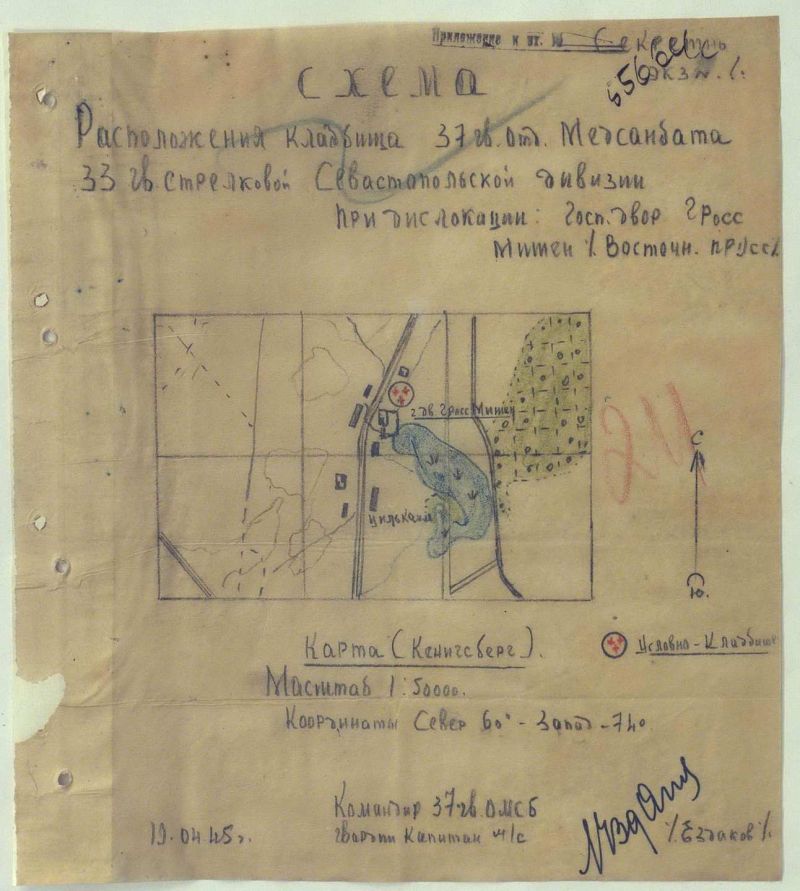 Приложение к вх. №
Секретно
Экз N. 1.
СХЕМА
Расположения кладбища 37 гв. Отд. Медсанбата
33 гв. стрелковой Севастопольской дивизии
при дислокации: Госп. двор Гросс
Митен /. Восточн. прусс/.
г. дв. Гросс Митен
Цилькайм
211
С.
Ю.
Карта (Кенигсберг).
Условно - Кладбище
Масштаб 1:50000.
Координаты Север 60° - Запад - 74°
Командир 37 гв. ОМСБ
19.04.45 г.
гвардии Капитан м/с
/. Ездаков /.